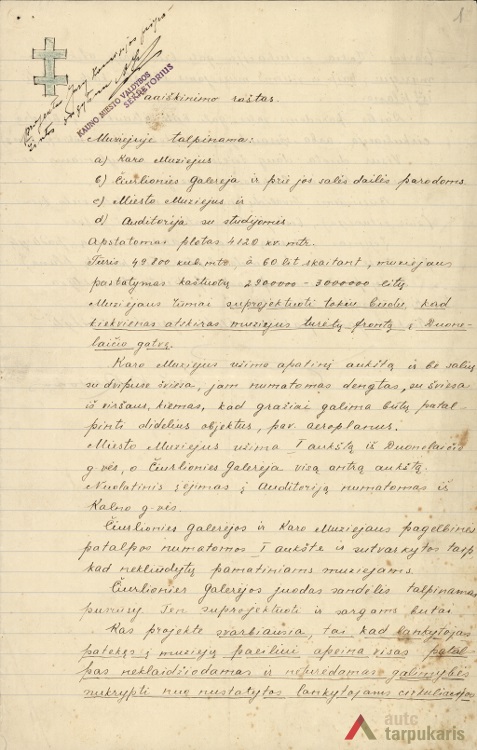 1
KAUNO MIESTO VALDYBOS
SEKRETORIUS
Paaiškinimo raštas.
Muziejuje talpinama:
a) Karo Muziejus
b) Čiurlionies Galereja ir prie jos salės dailės parodoms
c) Miesto Muziejus ir
d) Auditorija su studijomis
Apstatomas plotas 4120 kv. mtr.
Tūris 49.800 kub. mtr., à 60 lit skaitant, muziejaus
pastatymas kaštuotų 2900000 - 3000000 litų
Muziejaus rūmai suprojektuoti tokiu budu, kad
kiekvienas atskiras muziejus turėtų frontą į Duone-
laičio gatvę.
Karo Muziejus užima apatinį aukštą ir be salių
su dvipuse šviesa, jam numatomas dengtas, su šviesa
iš viršaus, kiemas, kad gražiai galima būtų patal-
pinti didelius objektus, pav. aeroplanus;
Miesto Muziejus užima I aukštą iš Duonelaičio
g-vės, o Čiurlionies Galereja visą antrą aukštą.
Nuolatinis įėjimas į Auditoriją numatomas iš
Kalno g-vės.
Čiurlionies galerejos ir Karo Muziejaus pagelbinės
patalpos numatomos I aukšte ir sutvarkytos taip
kad nekliudytų pamatiniams muziejams.
Čiurlionies Galerejos juodas sandėlis talpinamas
pusrūsy. Ten suprojektuoti ir sargams butai
Kas projekte svarbiausia, tai kad lankytojas
patekęs į muziejų paeiliui apeina visas patal-
pas neklaidžiodamas ir neturėdamas galimybės
nukrypti nuo nustatytos lankytojams cirkuliacijos
autc
tarpukaris